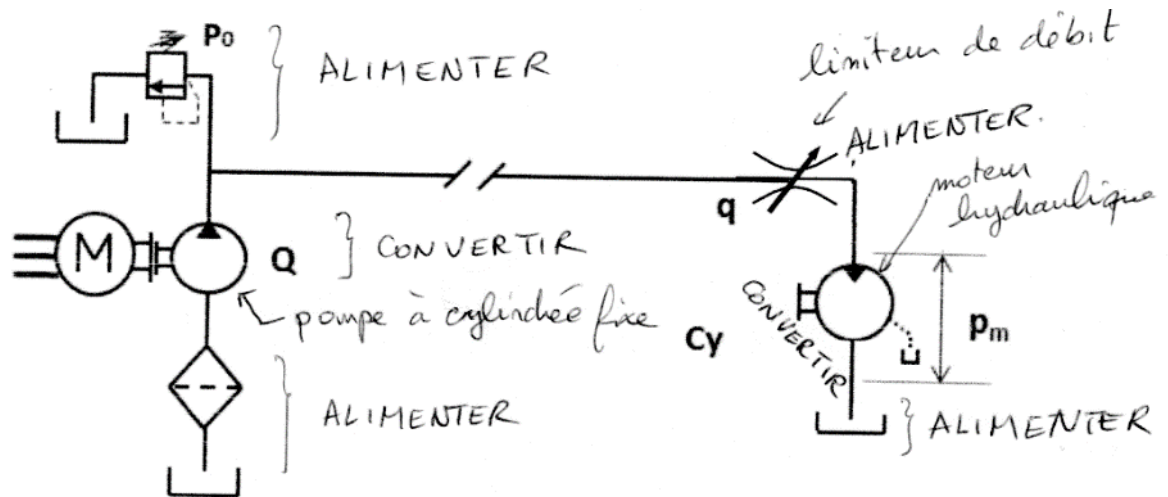 P₀
ALIMENTER
limiteur de débit
ALIMENTER.
q
moteur
hydraulique
M
Q
CONVERTIR
pompe à cylindrée fixe
Cy
CONVERTIR
pm
ALIMENTER
ALIMENTER